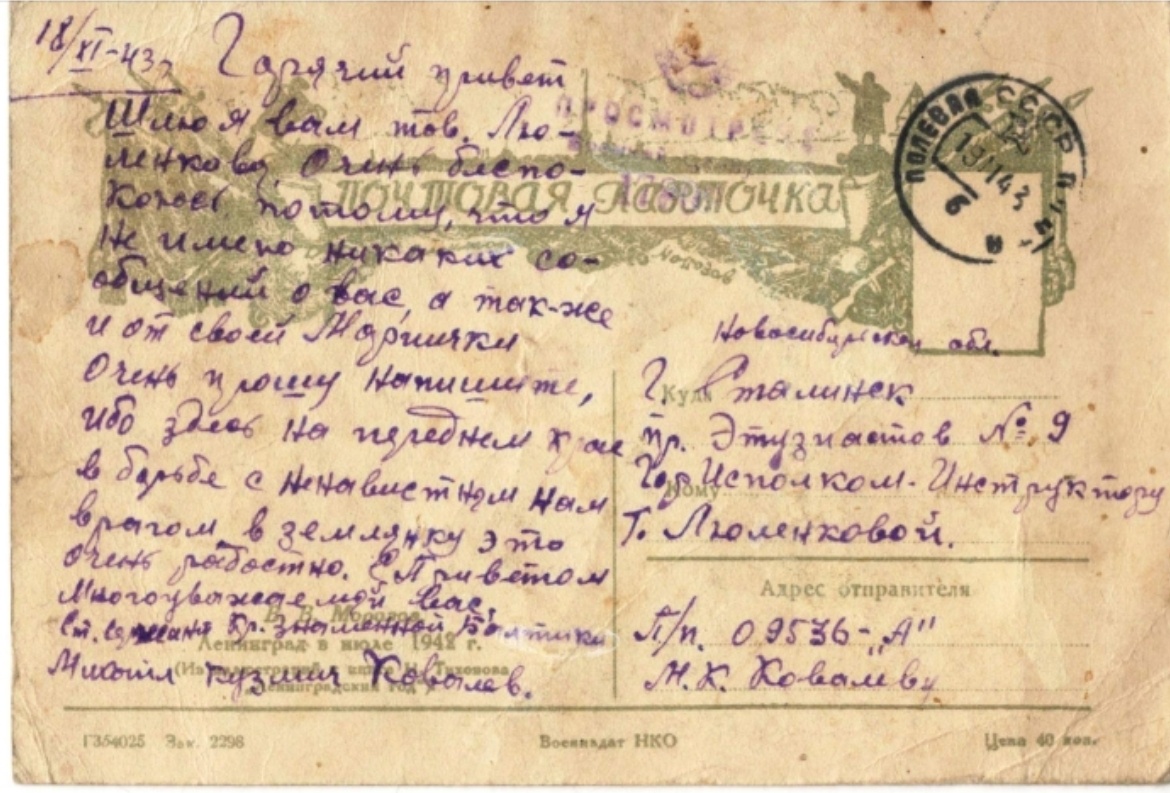 18/XI-43г
Горячий привет
Шлю я вам тов. Лю-
ленкову. Очень беспо-
коюсь потому, что я
не имею никаких со-
общений о вас, а так-же
и от своей Маргички
Очень прошу напишите,
ибо здесь на переднем крае
в борьбе с ненавистным нам
врагом, в землянку это
очень радостно. С Приветом
Многоуважаемой вас.
Ст. Сержант Кр. Знаменной Балтики
Михаил Кузмич Ковалев.
ПРОСМОТРЕНО
ПОЧТОВАЯ КАРТОЧКА
ПОЛЕВАЯ СССР ПОЧТА
19 11 43
6
Новосибирской обл.
Куда
Г. Сталинск
пр. Этузиастов № 9
Кому
Гор Исполком. Инструктору
Т. Люленковой.
Адрес отправителя
П/п. 09536-„А"
М. К. Ковалеву
В. В. Морозов
Ленинград в июле 1942 г.
(Из иллюстраций к книге Н. Тихонова
„Ленинградский год")
Г354025 Зак. 2298
Воениздат НКО
Цена 40 коп.